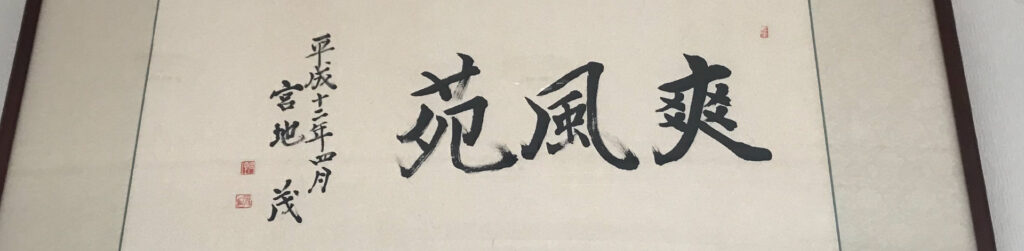 爽風苑
平成十二年四月
宮地 茂